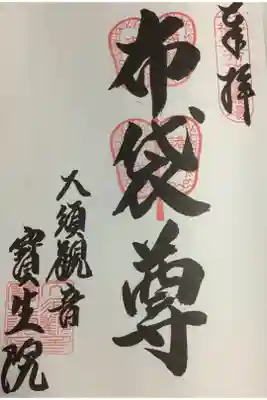 奉拝
布袋尊
大須觀音
寶生院